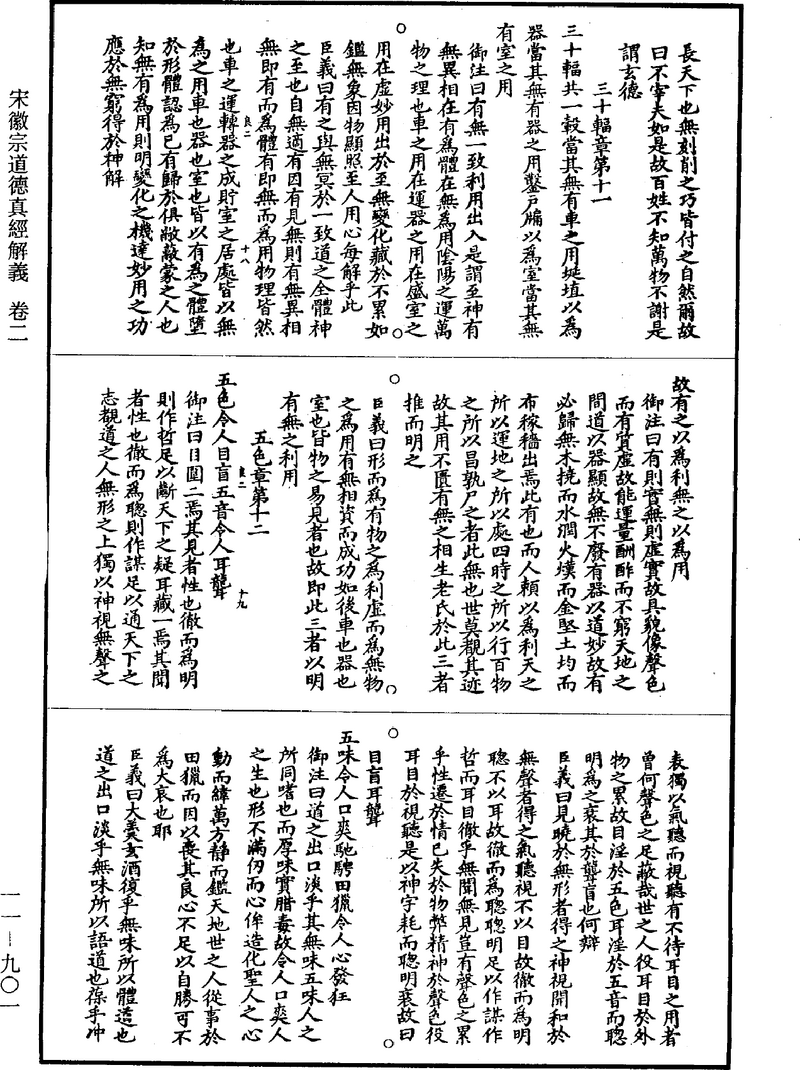 長天下也無刻削之巧皆付之自然爾故
曰不宰夫如是故百姓不知萬物不謝是
謂玄德
三十輻章第十一
三十輻共一轂當其無有車之用埏埴以為
器當其無有器之用鑿戶牖以為室當其無
有室之用
御注曰有無一致利用出入是謂至神有
無異相在有為體在無為用陰陽之運萬
物之理也車之用在運器之用在盛室之
用在虛妙用出於至無變化藏於不累如
鑑無象因物顯照至人用心每解乎此
臣義曰有之與無冥於一致道之全體神
之至也自無適有因有見無則有無異相
無即有而為體有即無而為用物理皆然
良二 十八
也車之運轉器之成貯室之居處皆以無
為之用車也器也室也皆以有為之體墮
於形體認為已有歸於俱敝蔽蒙之人也
知無有為用則明變化之機達妙用之功
應於無窮得於神解
故有之以為利無之以為用
御注曰有則實無則虛實故具貌像聲色
而有質虛故能運量酬酢而不窮天地之
間道以器顯故無不廢有器以道妙故有
必歸無木撓而水潤火熯而金堅土均而
布稼穡出焉此有也而人賴以為利天之
所以運地之所以處四時之所以行百物
之所以昌孰尸之者此無也世莫覩其迹
故其用不匱有無之相生老氏於此三者
推而明之
臣義曰形而為有物之為利虛而為無物
之為用有無相資而成功如後車也器也
室也皆物之易見者也故即此三者以明
有無之利用
五色章第十二
良二 十九
五色令人目盲五音令人耳聾
御注曰目圍二焉其見者性也徹而為明
則作哲足以斷天下之疑耳藏一焉其聞
者性也徹而為聰則作謀足以通天下之
志覩道之人無形之上獨以神視無聲之
表獨以氣聽而視聽有不待耳目之用者
曾何聲色之足蔽哉世之人役耳目於外
物之累故目淫於五色耳淫於五音而聰
明為之衰其於聾盲也何辯
臣義曰見曉於無形者得之神視聞和於
無聲者得之氣聽視不以目故徹而為明
聽不以耳故徹而為聰聰明足以作謀作
哲而耳目徹乎無聞無見豈有聲色之累
乎性遷於情已失於物弊精神於聲色役
耳目於視聽是以神宇耗而聰明衰故曰
目盲耳聾
五味令人口爽馳騁田獵令人心發狂
御注曰道之出口淡乎其無味五味人之
所同嗜也而厚味實腊毒故令人口爽人
之生也形不滿仞而心侔造化聖人之心
動而緯萬方靜而鑑天地世之人從事於
田獵而因以喪其良心不足以自勝可不
為大哀也耶
臣義曰大羹玄酒復乎無味所以體道也
道之出口淡乎無味所以語道也葆乎冲
宋徽宗道德真經解義　卷二
一一—九〇一